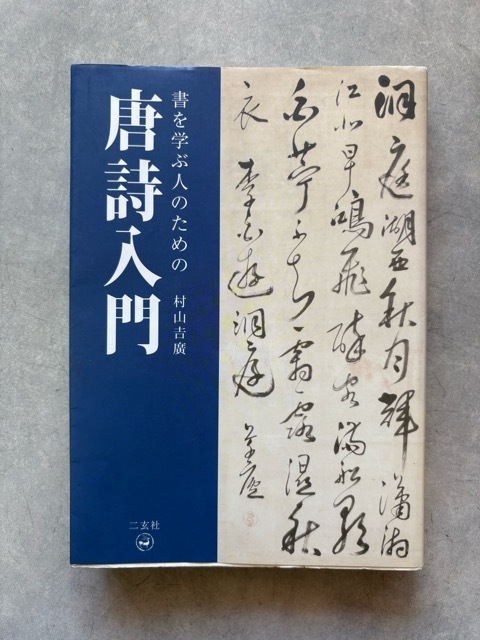 書を学ぶ人のための
唐詩入門
村山吉廣
二玄社
洞庭湖西秋月輝瀟湘
江北早鴻飛醉客滿船歌
白苧不知霜露湿秋
衣 李白遊洞庭 草廬